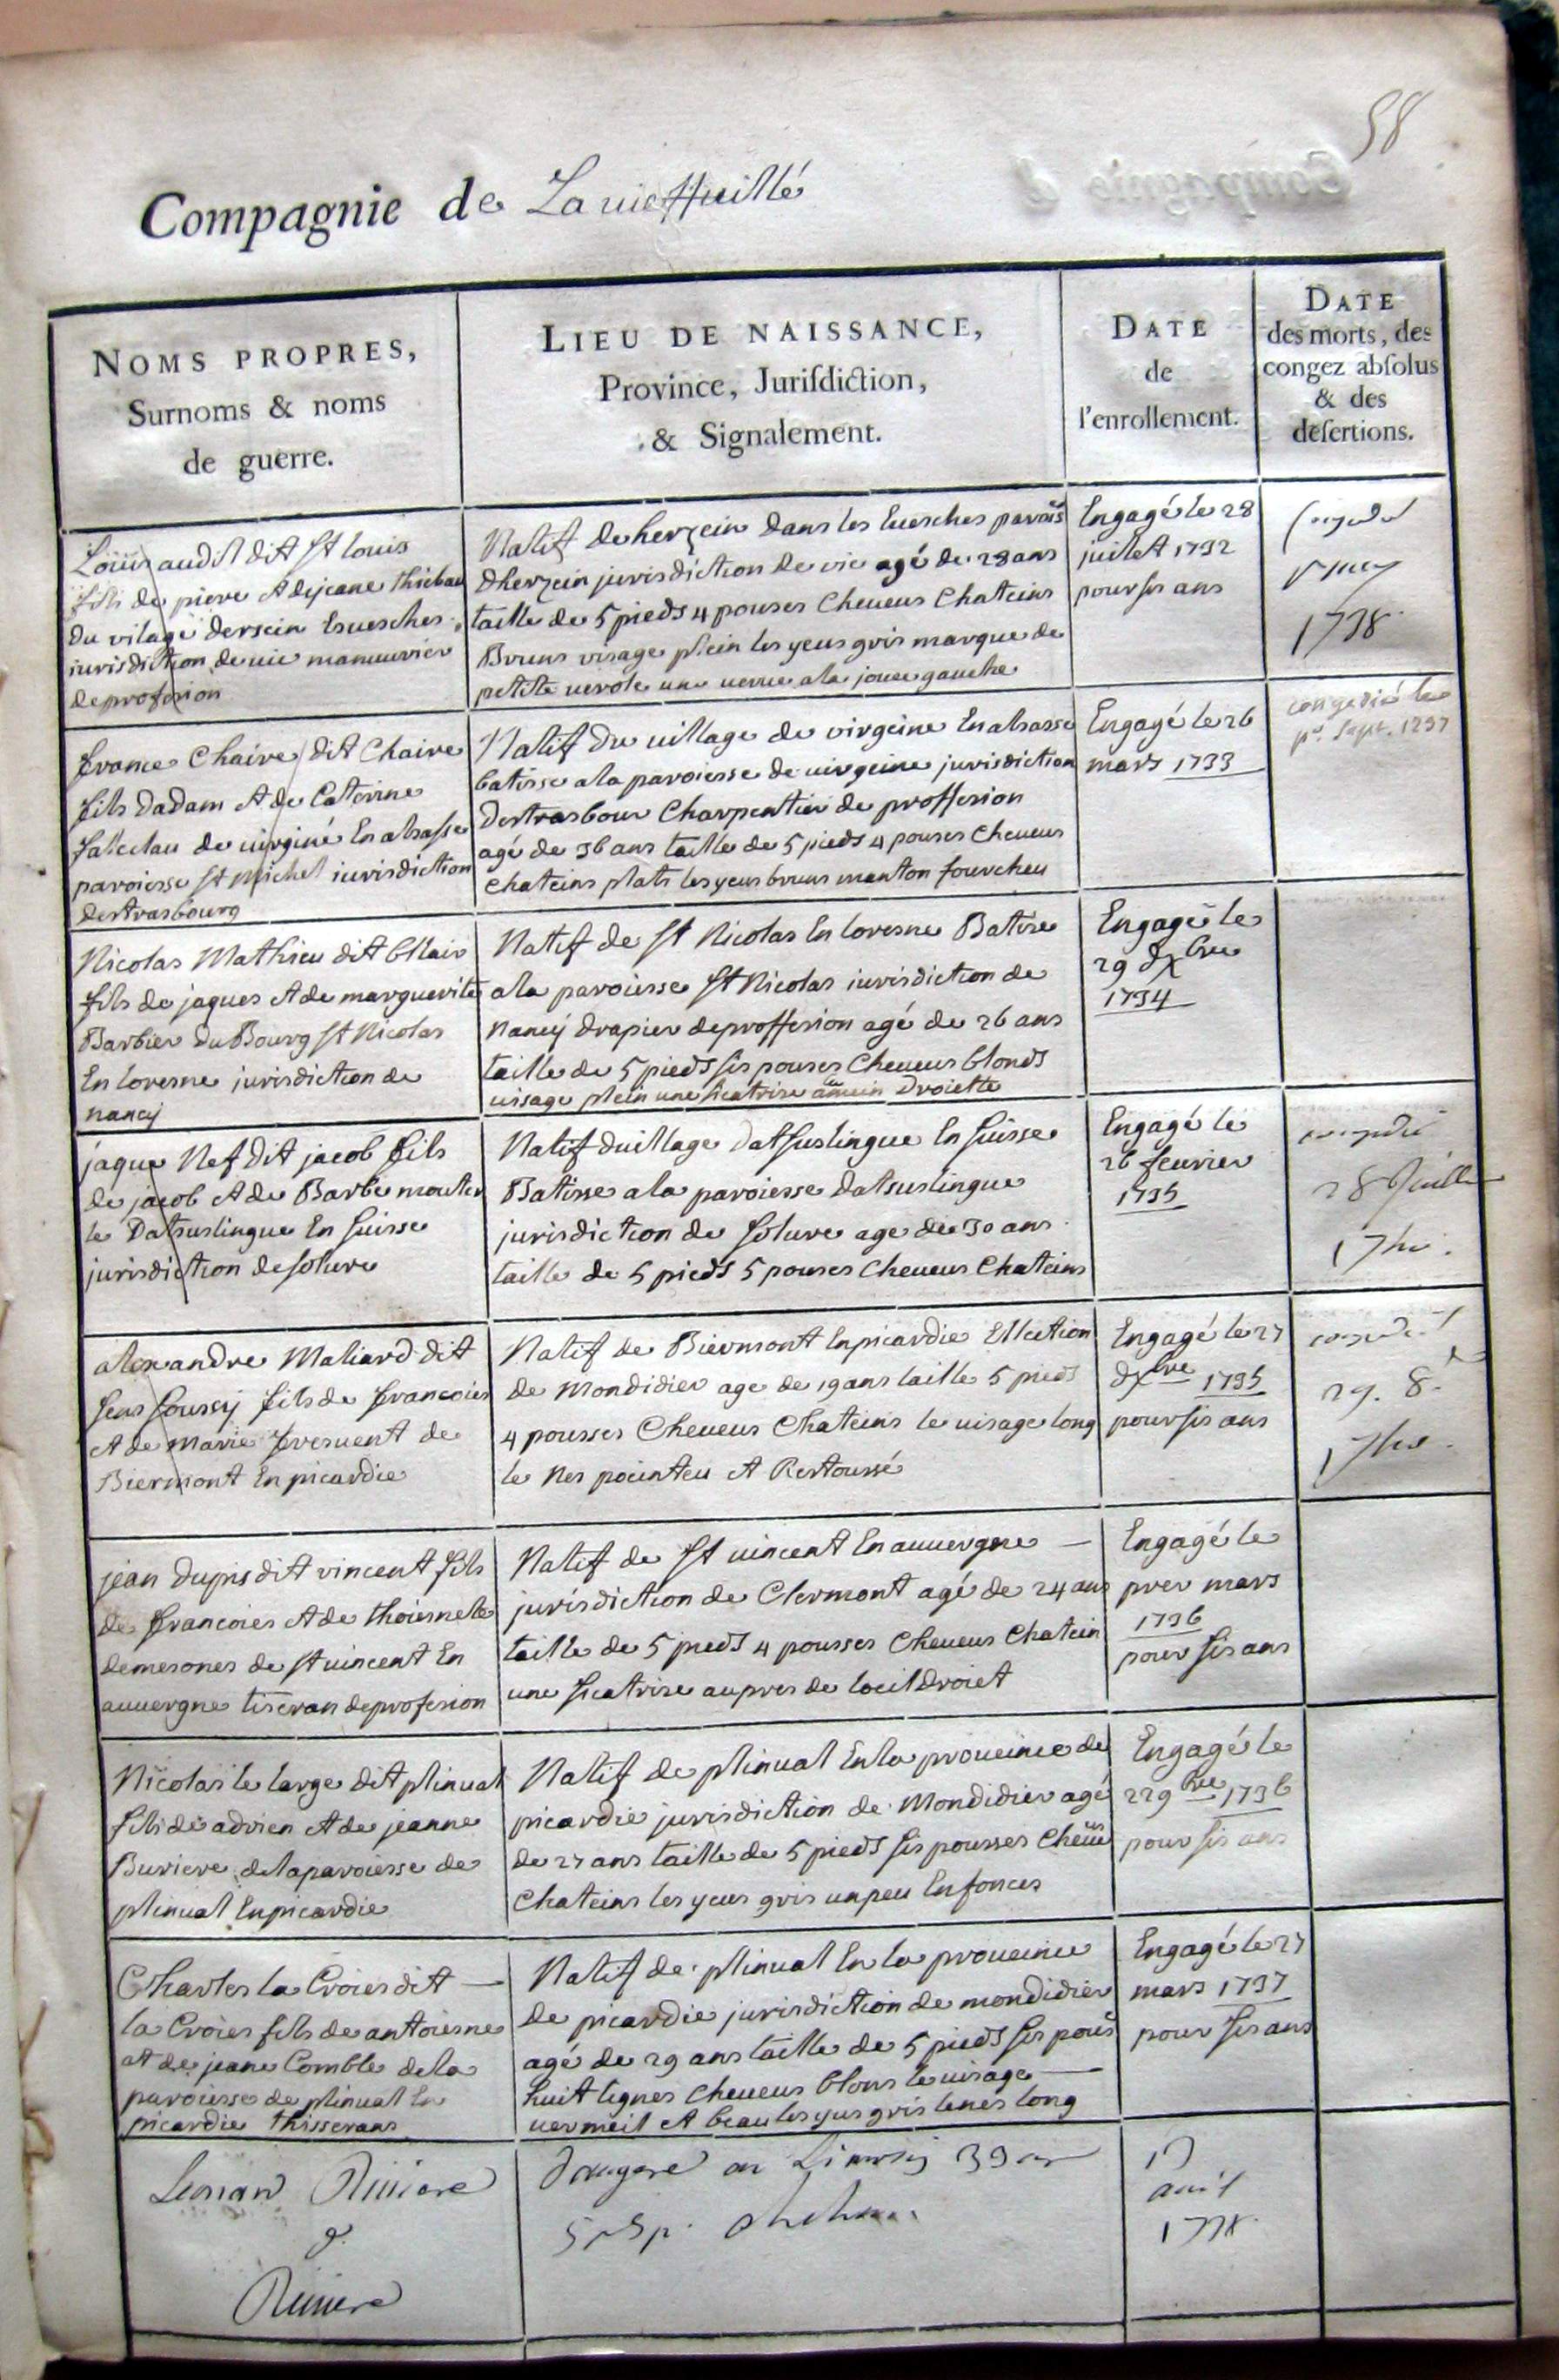 58
Compagnie de La vieffuillé
NOMS PROPRES,
Surnoms & noms
de guerre.
LIEU DE NAISSANCE,
Province, Jurisdiction,
& Signalement.
DATE
de
l'enrollement.
DATE
des morts, des
congez absolus
& des
desertions.
Louis audit dit St louis
fils de piere et de jeane thiebau
du vilage dersein Esuesches
iurisdiction de uic manuurier
de profesion
Natif de herzein dans les Euesches parois
dherzein jurisdiction de vic agé de 28 ans
taille de 5 pieds 4 pouses Cheueus Chateins
Bruns visage plein les yeus gris marque de
petite uerole une uerue a la joue gauche
Engagé le 28
juillet 1732
pour sis ans
1738
france Chaire dit Chaire
fils dadam et de Caterine
de uirginé En alsasse
paroiesse St michel iurisdiction
destrasbourg
Natif du uillage de virgeine En alsasse
batisse a la paroiesse de uirgeine jurisdiction
destrasbour Charpentier de proffesion
agé de 36 ans taille de 5 pieds 4 pouses Cheueus
Chateins plats les yeus bruns manton fourcheu
Engagé le 26
mars 1733
congedié le
pr. Sept. 1737
Nicolas Mathieu dit Cllair
fils de jaques et de marguerite
Barbier du Bourg St Nicolas
En loresne jurisdiction de
nancy
Natif de St Nicolas En loresne Batise
a la paroiesse St Nicolas iurisdiction de
Nancy drapier de proffesion agé de 26 ans
taille de 5 pieds sis pouses Cheueus blonds
uisage plein une sicatrise a mein droiette
Engagé le
29 dxbre
1734
jaque Nef dit jacob fils
de jacob et de Barbe mouter
le Datsuslingue En suisse
jurisdiction de solure
Natif duillage datsuslingue En suisse
Batisse a la paroiesse datsuslingue
jurisdiction de solure age de 30 ans
taille de 5 pieds 5 pouses Cheueus Chateins
Engagé le
26 feurier
1735
28 Juillet
alexandre Maliard dit
sens soussy fils de francoies
et de marie fresuent de
Biermont En picardie
Natif de Biermont En picardie Ellection
de Mondidier age de 19 ans taille 5 pieds
4 pousses Cheueus Chateins le uisage long
le Nes pointeu et Restoussé
Engagé le 27
dxbre 1735
pour sis ans
29. 8.
jean dupis dit vincent fils
de francoies et de thoiesnete
demesones de St uincent En
auuergne tiseran de profesion
Natif de St uincent En auuergne
jurisdiction de Clermont agé de 24 ans
taille de 5 pieds 4 pousses Cheueus Chatein
une sicatrise aupres de loeil droiet
Engagé le
prer mars
1736
pour sis ans
Nicolas le large dit plinual
fils de adrien et de jeanne
Buriere de la paroiesse de
plinual En picardie
Natif de plinual En la proueince de
picardie jurisdiction de Mondidier agé
de 27 ans taille de 5 pieds sis pousses Cheueus
Chateins les yeus gris un peu Enfonces
Engagé le
22 9bre 1736
pour sis ans
Charles la Croies dit
la Croies fils de antoiesne
et de jeane Comble de la
paroiesse de plinual En
picardie thisserans
Natif de plinual En la proueince
de picardie jurisdiction de mondidier
agé de 29 ans taille de 5 pieds sis pous
huit lignes Cheueus blons le uisage
uermeil et beau les yeus gris le nes long
Engagé le 27
mars 1737
pour sis ans
Riuiere
d.
Riuiere
en Limosin 39 ans
5 p 3 p.
17
auril
1738